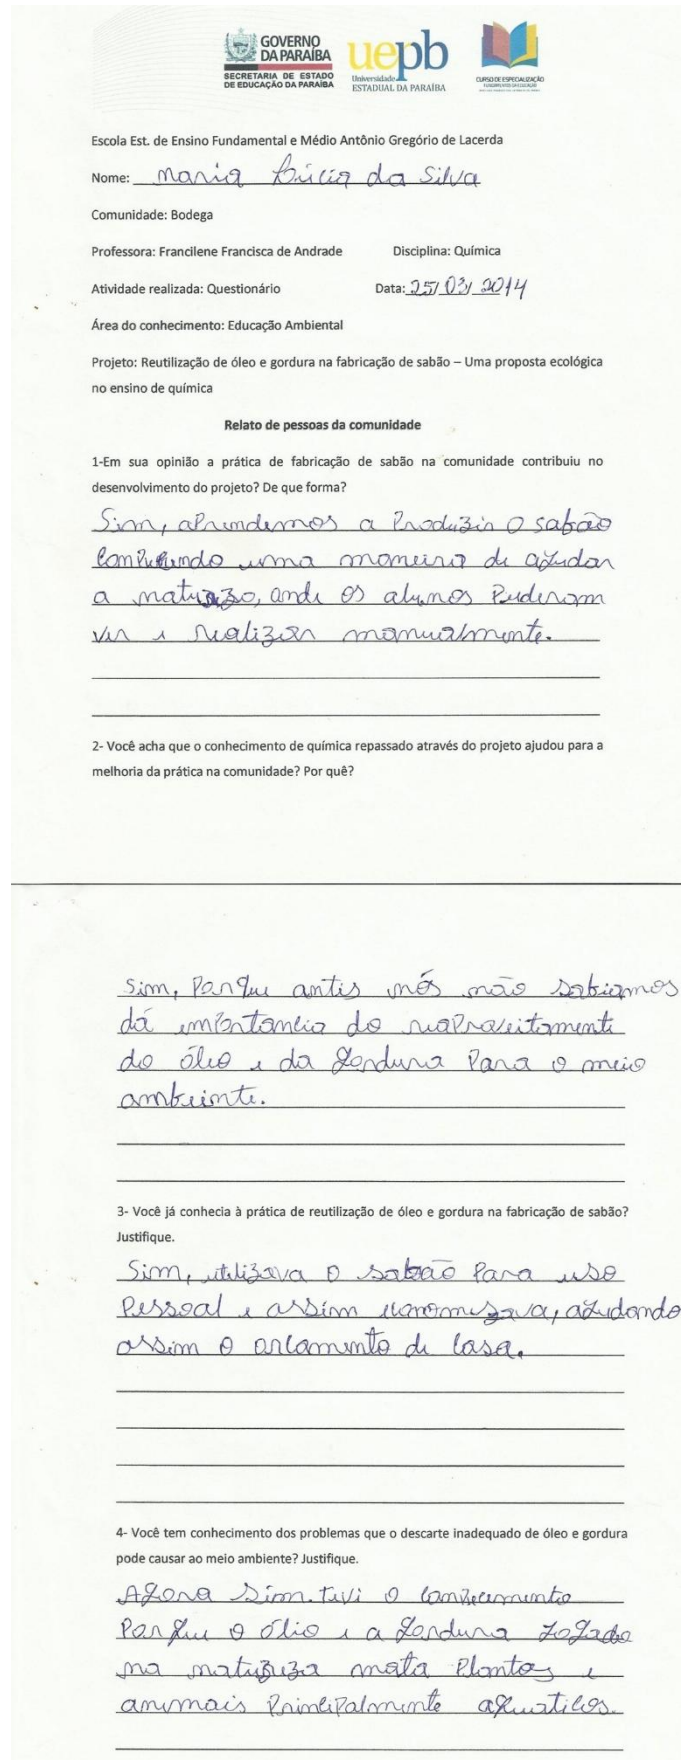 GOVERNO
DA PARAÍBA
SECRETARIA DE ESTADO
DE EDUCAÇÃO DA PARAÍBA
uepb
Universidade
ESTADUAL DA PARAÍBA
CURSO DE ESPECIALIZAÇÃO
Escola Est. de Ensino Fundamental e Médio Antônio Gregório de Lacerda
Nome: Maria Lúcia da Silva
Comunidade: Bodega
Professora: Francilene Francisca de Andrade Disciplina: Química
Atividade realizada: Questionário Data: 25/03/2014
Área do conhecimento: Educação Ambiental
Projeto: Reutilização de óleo e gordura na fabricação de sabão – Uma proposta ecológica
no ensino de química
Relato de pessoas da comunidade
1-Em sua opinião a prática de fabricação de sabão na comunidade contribuiu no
desenvolvimento do projeto? De que forma?
Sim, aprendemos a Produzir o sabão
uma maneira de ajudar
a natureza, onde os alunos Puderam
ver e realizar manualmente.
2- Você acha que o conhecimento de química repassado através do projeto ajudou para a
melhoria da prática na comunidade? Por quê?
Sim, Porque antis nós não sabiamos
dá importancia do reaproveitamento
do óleo e da gordura Para o meio
ambeinte.
3- Você já conhecia à prática de reutilização de óleo e gordura na fabricação de sabão?
Justifique.
Sim, utilizava o sabão Para uso
Pessoal e assim economizava, ajudando
assim o orcamento de casa.
4- Você tem conhecimento dos problemas que o descarte inadequado de óleo e gordura
pode causar ao meio ambiente? Justifique.
Agora Sim. Tivi o conhecimento
Porque o ólio e a gordura jogado
na natureza mata Plantas e
animais Principalmente aquaticos.